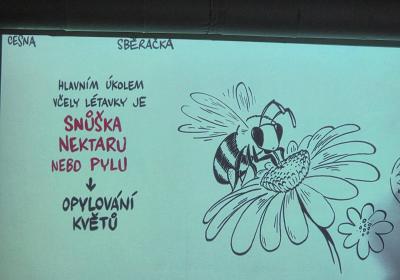 ČEŠNA SBĚRAČKA
HLAVNÍM ÚKOLEM
VČELY LÉTAVKY JE
SNŮŠKA
NEKTARU
NEBO PYLU
OPYLOVÁNÍ
KVĚTŮ